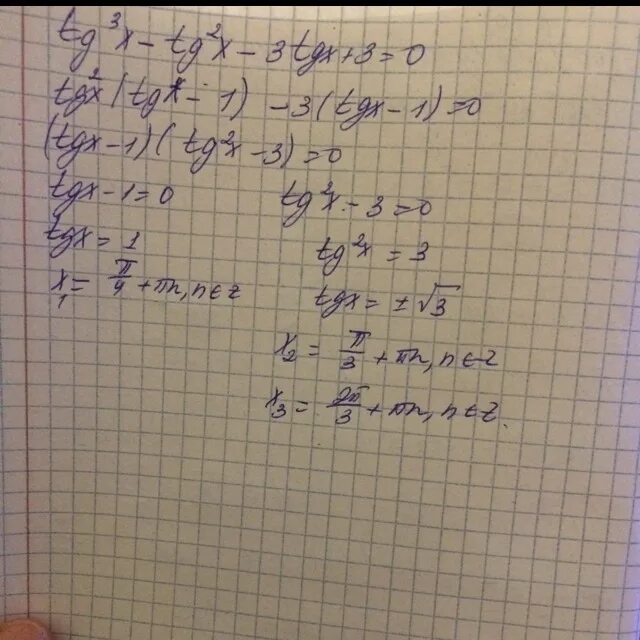 tg³x - tg²x - 3tgx + 3 = 0
tg²x(tgx - 1) - 3(tgx - 1) = 0
(tgx - 1)(tg²x - 3) = 0
tgx - 1 = 0
tgx = 1
x₁ = π/4 + πn, n∈z
tg²x - 3 = 0
tg²x = 3
tgx = ±√3
x₂ = π/3 + πn, n∈z
x₃ = 2π/3 + πn, n∈z.